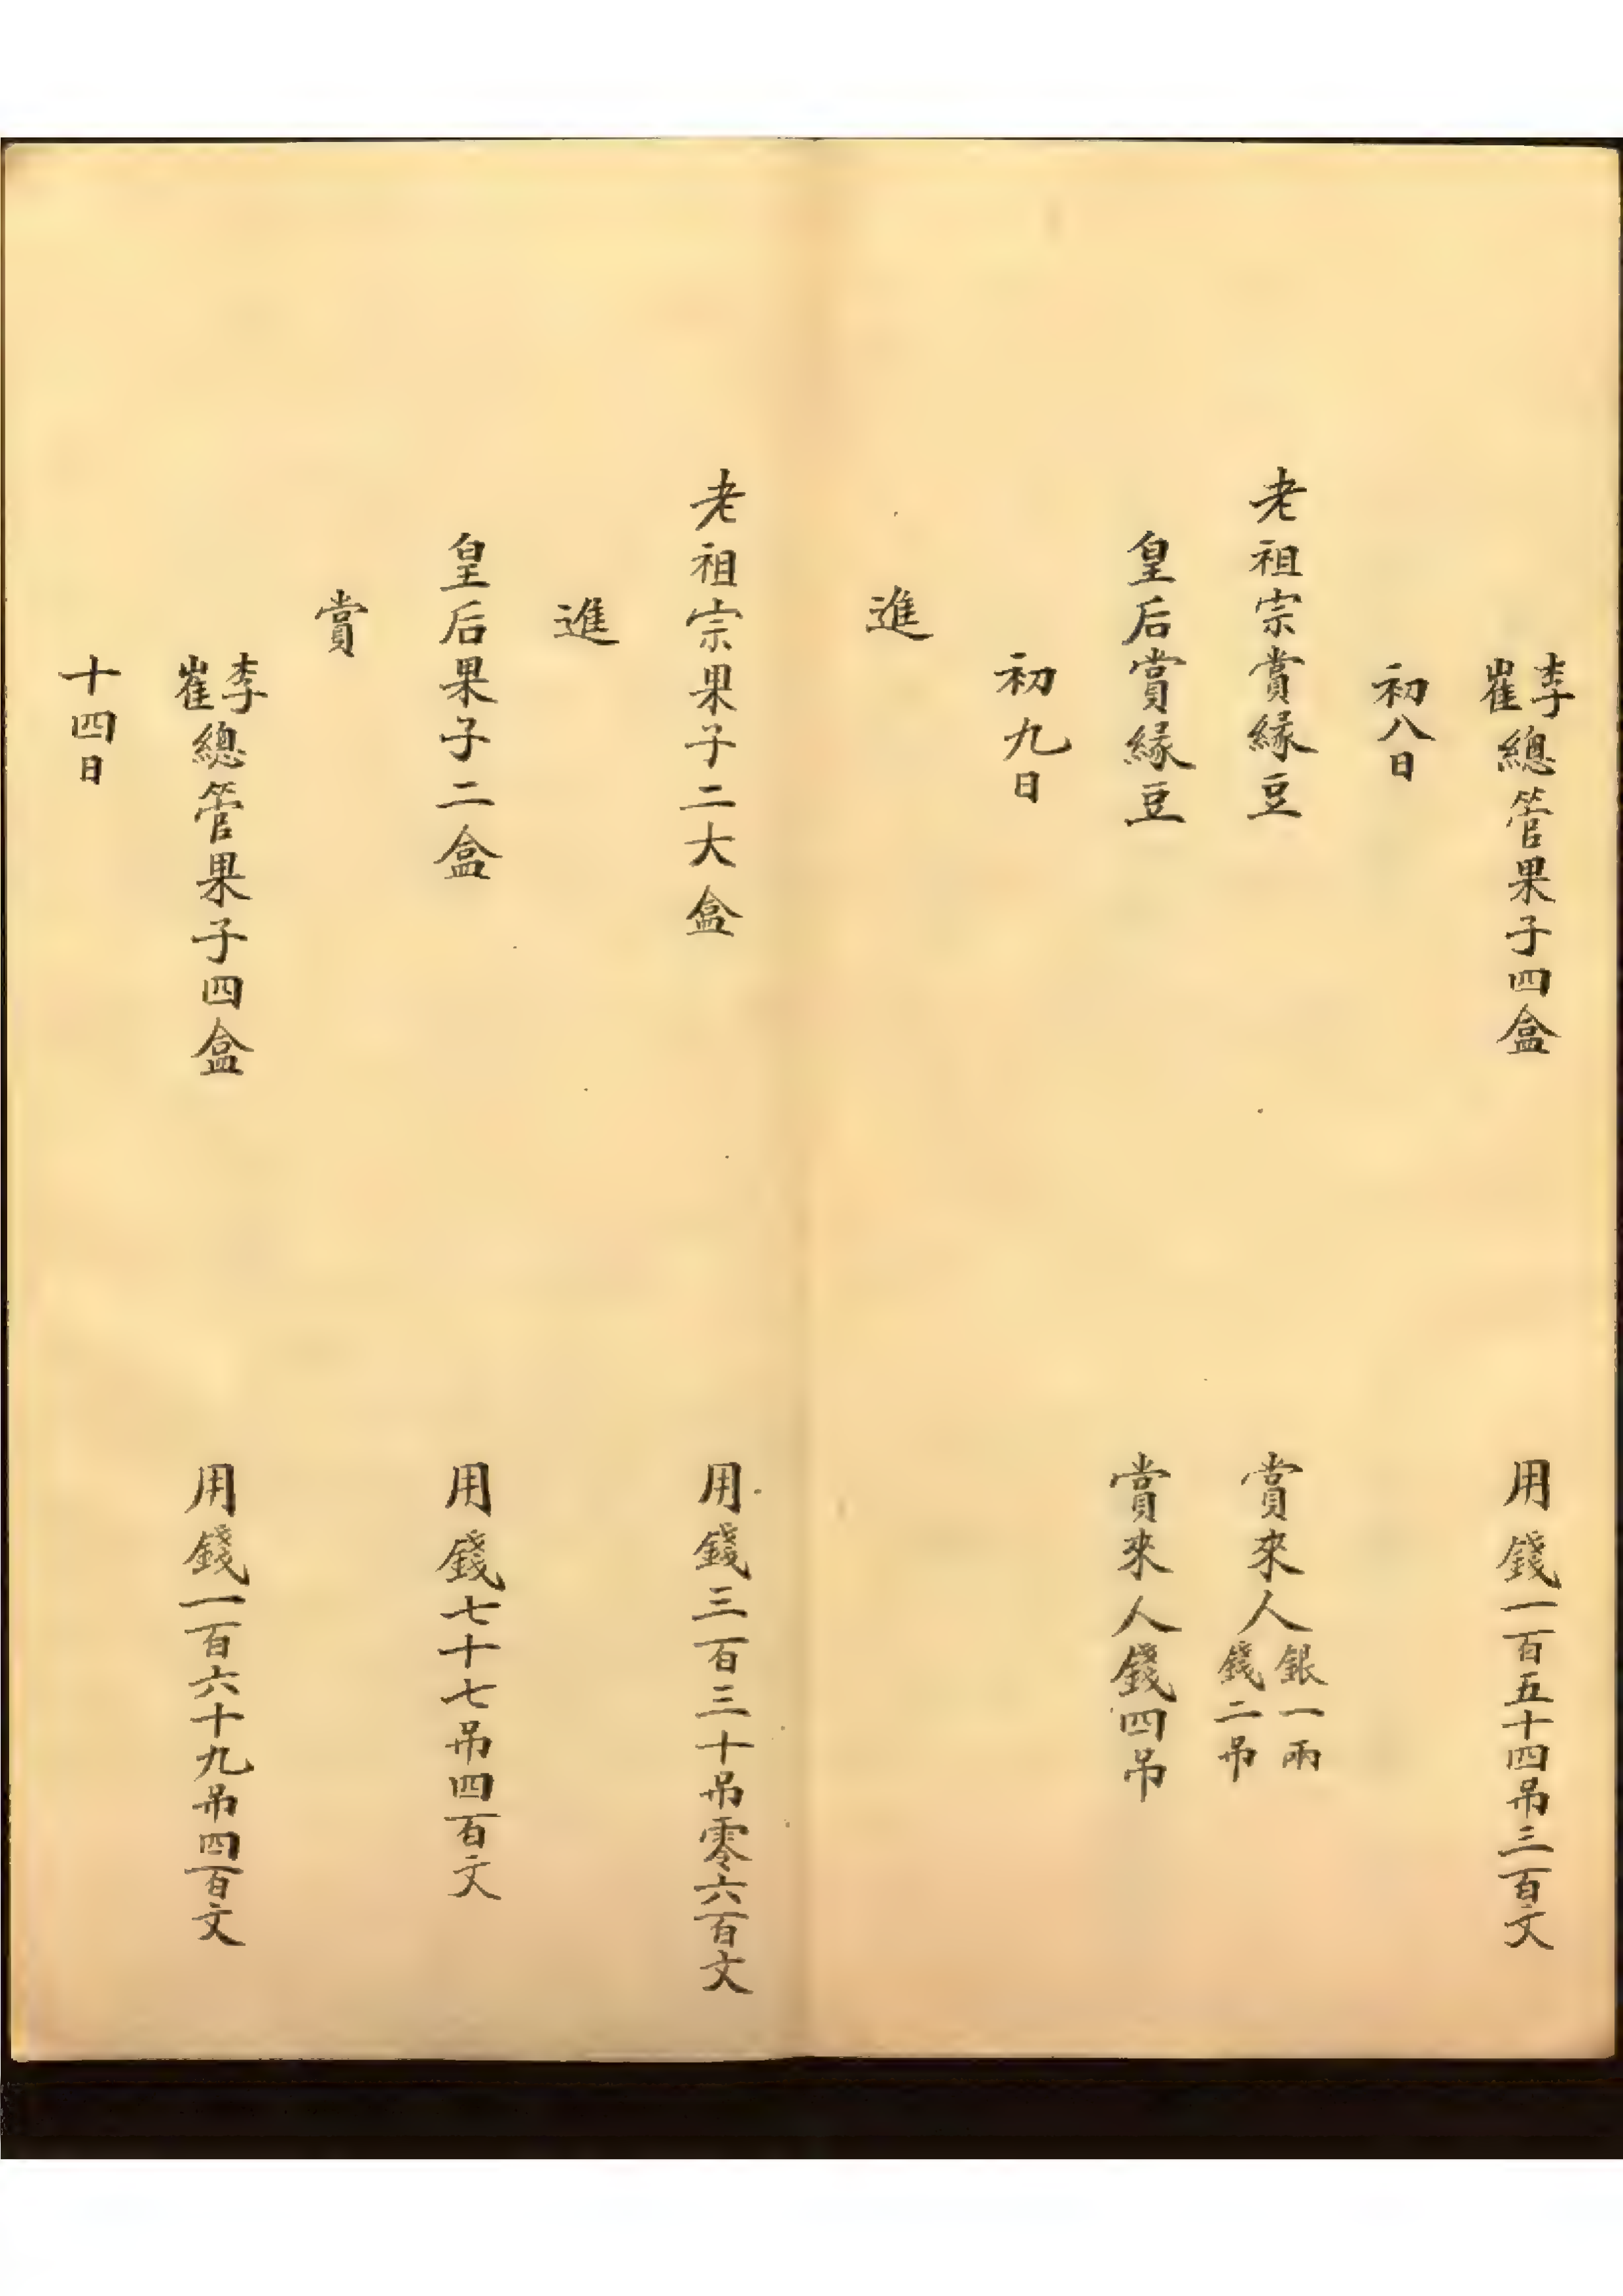 李崔總管果子四盒 用錢一百五十四吊三百文
初八日
老祖宗賞緣豆 賞來人銀一兩錢二吊
皇后賞緣豆 賞來人錢四吊
初九日
進
老祖宗果子二大盒 用錢三百三十吊零六百文
進
皇后果子二盒 用錢七十七吊四百文
賞
李崔總管果子四盒 用錢一百六十九吊四百文
十四日